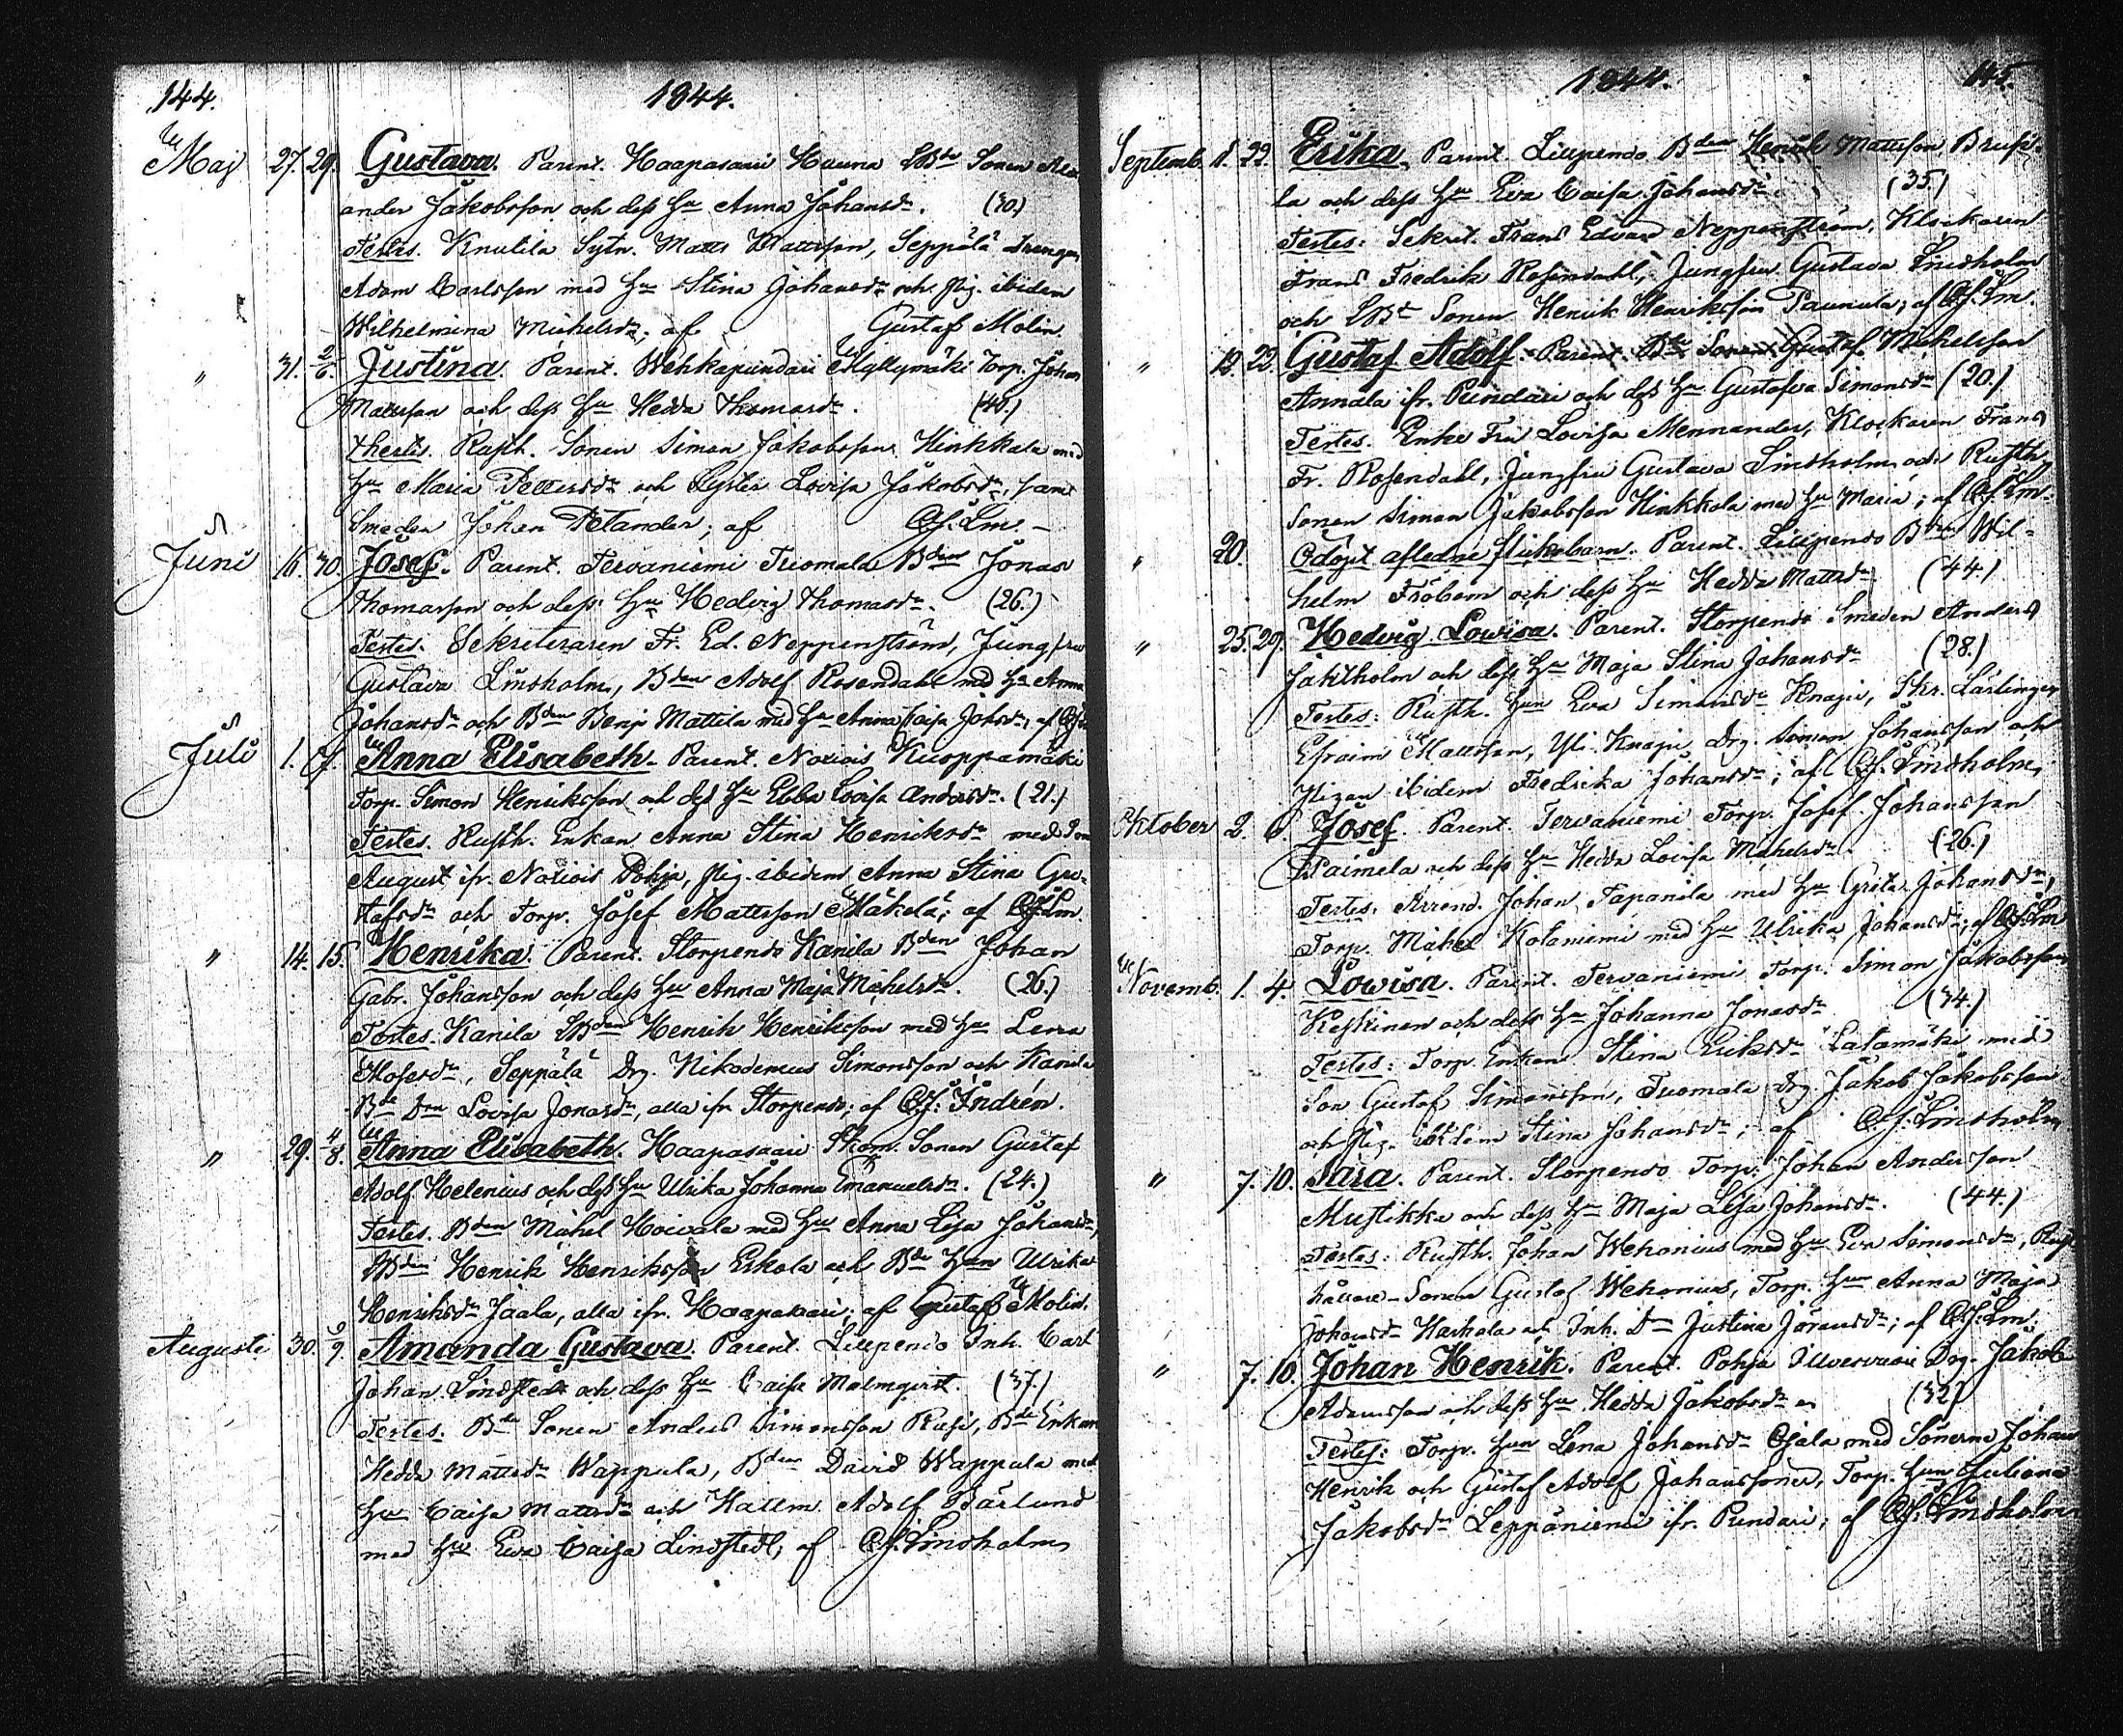 144.
1844.
Maj 27. 29. Gustava. Parent. Haapasaari Hauna Sonen
ander Jakobsson och dess Hu Anna Johansdr. (30.)
Testes. Knutila Sytn. Matts Mattsson, Seppälä Drengen
Adam Carlsson med Hu Stina Johansdr och Pig. ibidem
Wilhelmina Michelsdr; af Gustaf Molin.
" 31. 2/6. Justina. Parent. Wehkapundari Myllymäki Torp. Johan
Mattsson och dess Hu Hedda Thomasdr.
Testes. Rusth. Sonen Simon Jakobsson Hinkkala med
Hu Maria Pettersdr och Syster Lovisa Jakobsdr, samt
Smeden Johan Delander; af C. J. Lm. –
Juni 16. 30. Josef. Parent. Tervaniemi Tuomala Bden Jonas
Thomasson och dess Hu Hedvig Thomasdr. (26.)
Testes. Sekreteraren Fr. Ed. Neppenström, Jungfru
Gustava Lindholm, Bden Adolf Rosendahl med Hu Anna
Johansdr och Bden Benj. Mattila med Hu Anna Caisa Johsdr; af
Juli 1. 7. Anna Elisabeth. Parent. Noriois Kuoppamäki
Torp. Simon Henriksson och dess Hu Ebba Lovisa Andersdr. (21.)
Testes. Rusth. Enkan Anna Stina Henriksdr med Son
August ifr. Noriois Pohja, Pig. ibidem Anna Stina Gus-
tafsdr och Torp. Josef Mattsson Mäkelä; af C. J. Lm.
" 14. 15. Henrika. Parent. Storpendo Kanila Bden Johan
Gabr. Johansson och dess Hu Anna Maja Michelsdr. (26.)
Testes. Kanila Bden Henrik Henriksson med Hu Lena
Mosesdr, Seppälä Drg. Nikodemus Simonsson och Kanila
Bde Don Lovisa Jonasdr, alla ifr. Storpendo; af C. J. Indrén.
" 29. 4/8. Anna Elisabeth. Haapasaari Skom. Sonen Gustaf
Adolf Helenius och dess Hu Ulrika Johanna Emanuelsdr. (24.)
Testes. Bden Michel Hoivala med Hu Anna Lisa Johansdr,
Bden Henrik Henriksson Eskola och Bde Hun Ulrika
Henriksdr Jaala, alla ifr. Haapasaari; af Gustaf Molin.
Augusti 30. 9/9. Amanda Gustava. Parent. Lillpendo Inh. Carl
Johan Lindstedt och dess Hu Caisa Malmqvist. (37.)
Testes. Bde Sonen Anders Simonsson Rusi, Bde Enkan
Hedda Mattsdr Wappula, Bden David Wappula med
Hu Caisa Mattsdr och Hattm. Adolf Bärlund
med Hu Eva Caisa Lindstedt; af C. J. Lindholm
1844.
145.
Septemb. 22. Erika. Parent. Lillpendo Bden Henrik Mattsson
la och dess Hu Eva Caisa Johansdr. (35)
Testes: Sekret. Frans Edvard Neppenström, Klockaren
Frans Fredrik Rosendahl, Jungfru Gustava Lindholm
och Sonen Henrik Henriksson Paunula; af C. J. Lm.
" 22. Gustaf Adolf. Parent. Bde Sonen Gustaf Michelsson
Annala ifr. Pundari och dess Hu Gustafva Simonsdr (20.)
Testes. Enke Fru Lovisa Mennander, Klockaren Frans
Fr. Rosendahl, Jungfru Gustava Lindholm och Rusth.
Sonen Simon Jakobsson Hinkkala med Hu Maria; af C. J. Lm.
" 20. Odöpt afledne flickebarn. Parent. Lillpendo Bden Wil-
helm Fröbom och dess Hu Hedda Mattsdr (44.)
" 25. 29. Hedvig Lovisa. Parent. Storpendo Smeden Anders
och dess Hu Maja Stina Johansdr (28.)
Testes: Rusth. Hun Eva Simonsdr Knapi, Skr. Lärlingen
Efraim Mattsson, Yli Knapi Drg. Simon Johansson och
Pigan ibidem Fredrika Johansdr; af C. J. Lindholm.
Oktober 2. 6. Josef. Parent. Tervaniemi Torp. Josef Johansson
Paimela och dess Hu Hedda Lovisa Michelsdr. (26.)
Testes: Arrend. Johan Tapanila med Hu Greta Johansdr,
Torp. Michel Kotaniemi med Hu Ulrika Johansdr; af C. J. Lm
Novemb. 1. 4. Lowisa. Parent. Tervaniemi Torp. Simon Jakobsson
Keskinen och dess Hu Johanna Jonasdr (34.)
Testes: Torp. Enkan Stina Eriksdr Latamäki med
Son Gustaf Simonsson, Tuomala Drg. Jakob Jakobsson
och Pig. ibidem Stina Johansdr; af C. J. Lindholm
" 7. 10. Sara. Parent. Storpendo Torp. Johan Andersson
Mustikka och dess Hu Maja Lisa Johansdr. (44.)
Testes: Rusth. Johan Wekonius med Hu Eva Simonsdr, Rust-
hållare-Sonen Gustaf Wekonius, Torp. Hun Anna Maja
Johansdr Harhala och Inh. Don Justina Jöransdr; af C. J. Lm.
" 7. 10. Johan Henrik. Parent. Pohja Drg. Jakob
Adamsson och dess Hu Hedda Jakobsdr (32)
Testes: Torp. Hun Lena Johansdr Ojala med Sönerne Johan
Henrik och Gustaf Adolf Johanssöner, Torp. Hun Juliana
Jakobsdr Leppäniemi ifr. Pundari; af C. J. Lindholm